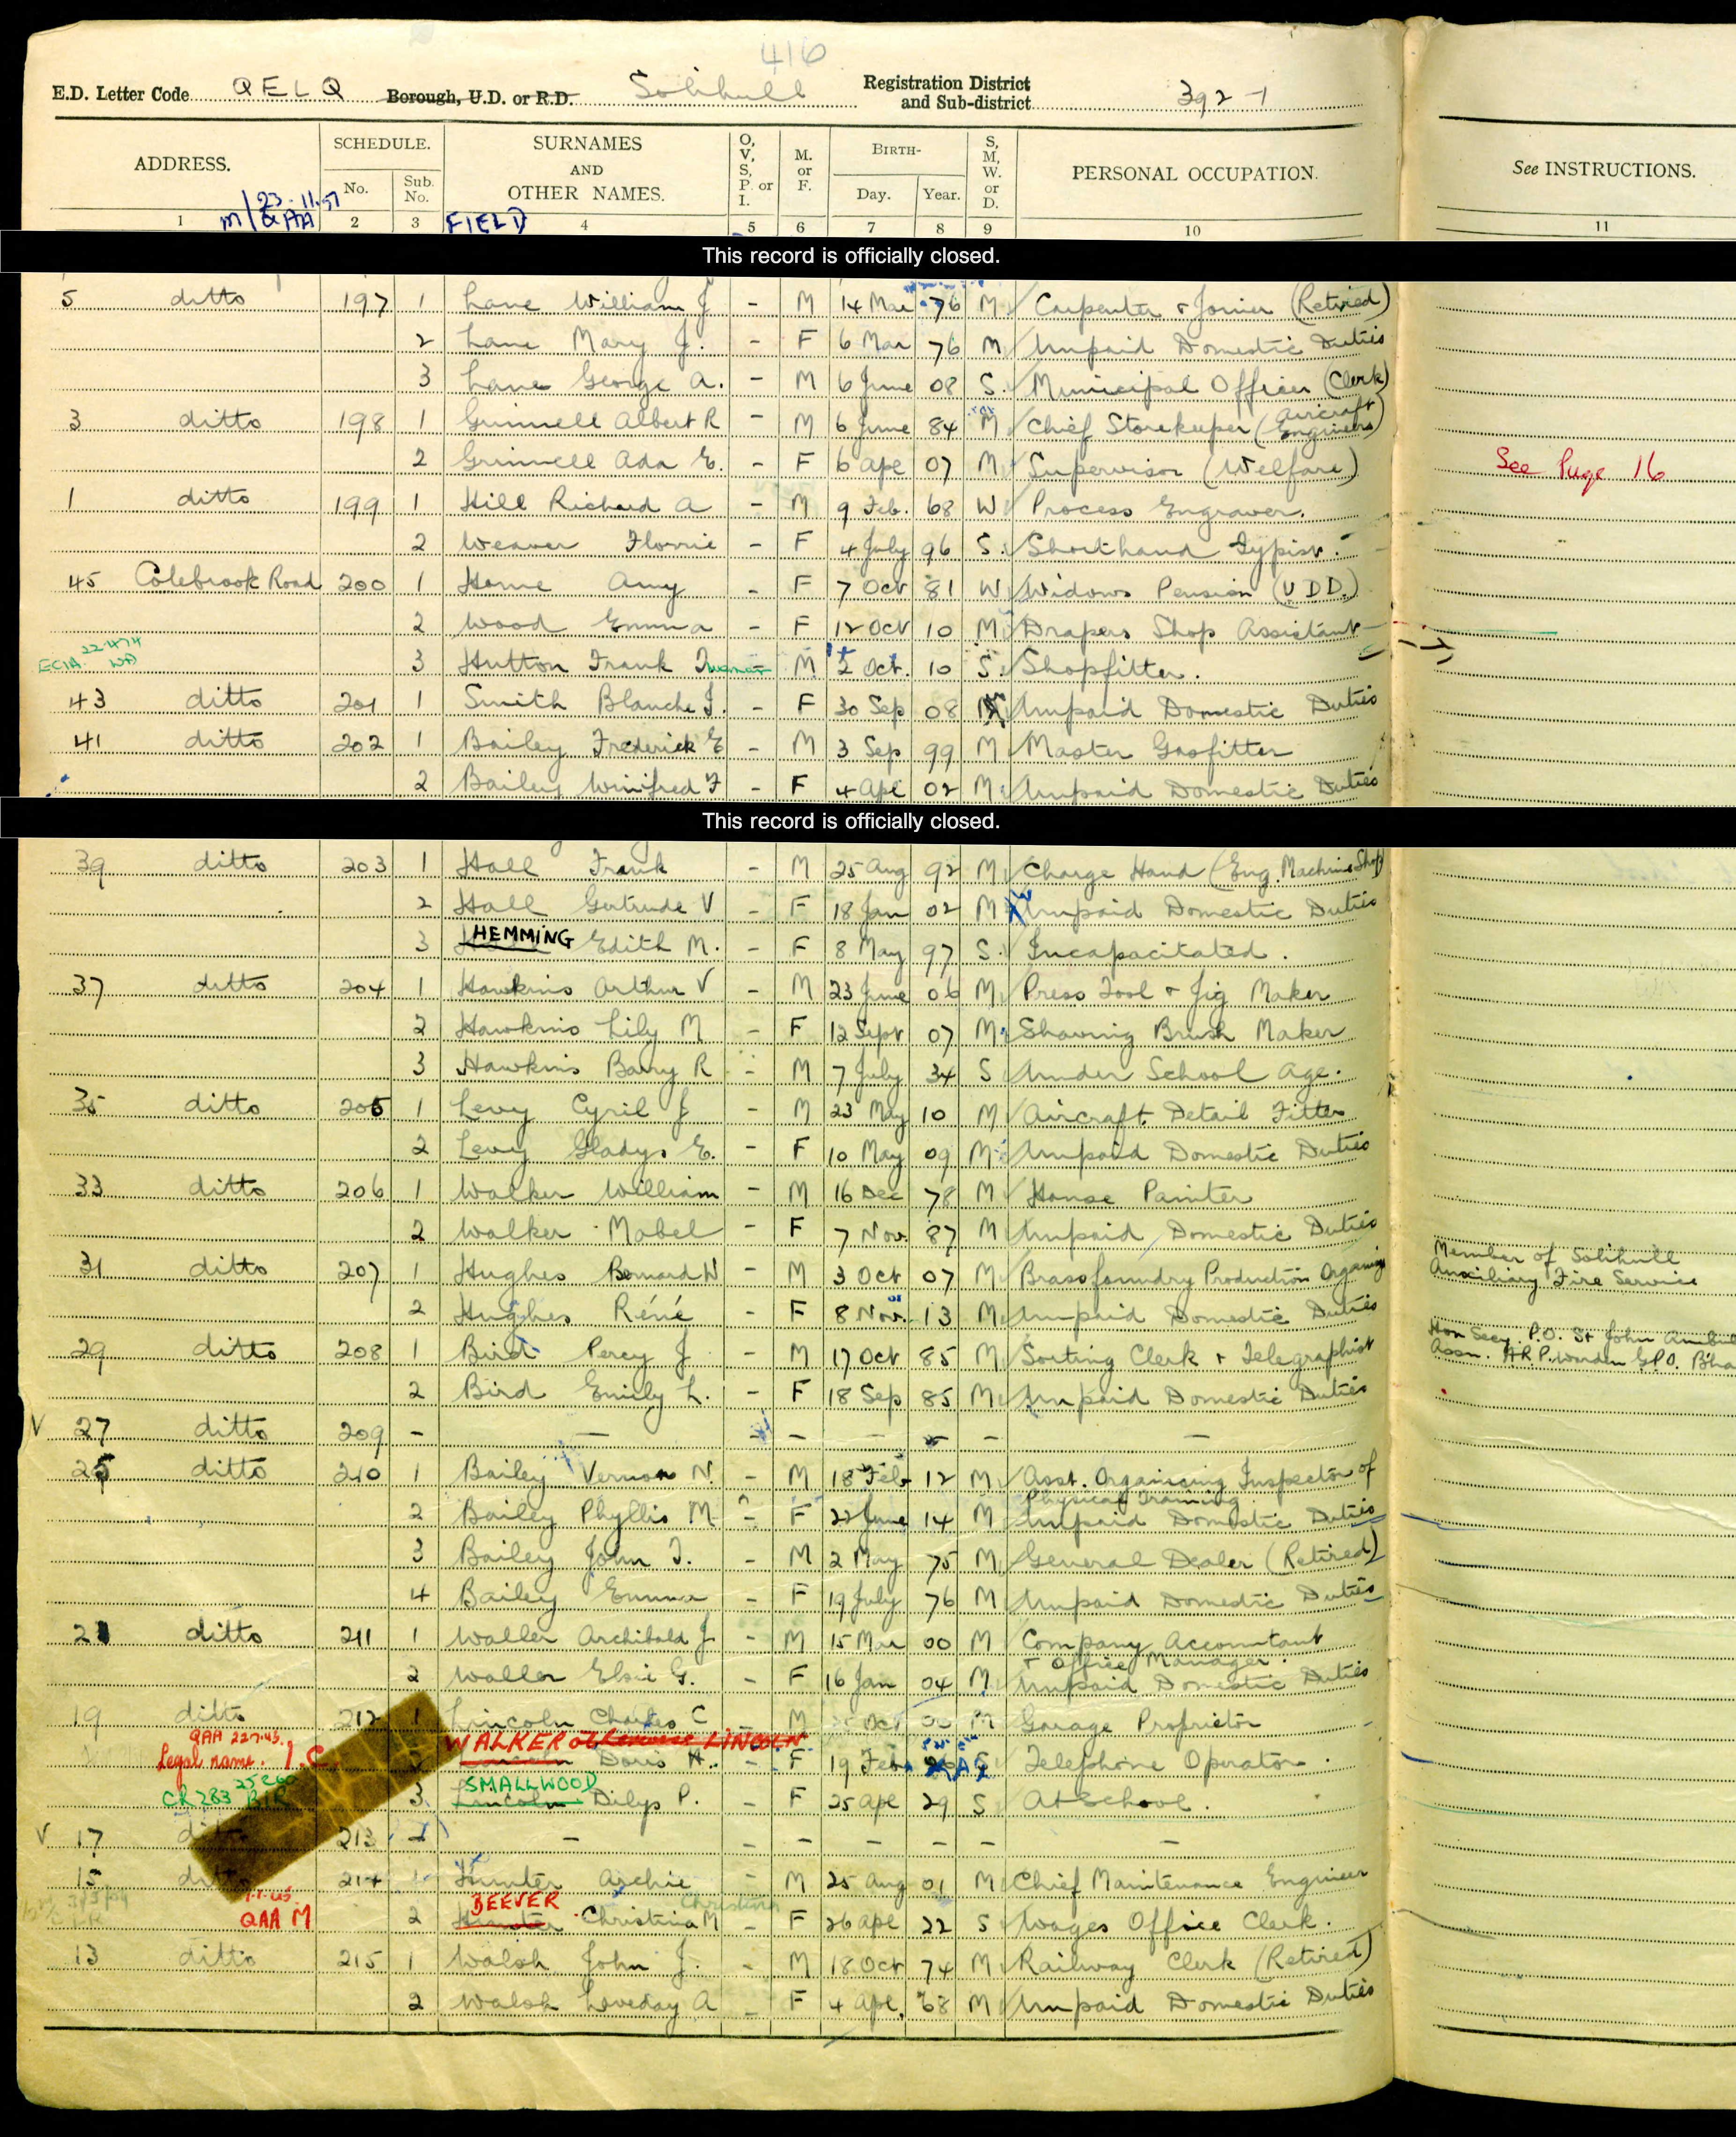 416
E.D. Letter Code QELQ Borough, U.D. or R.D. Solihull Registration District and Sub-district 392-1
ADDRESS. SCHEDULE. No. Sub. No. SURNAMES AND OTHER NAMES. O, V, S, P. or I. M. or F. BIRTH- Day. Year. S, M, W. or D. PERSONAL OCCUPATION. See INSTRUCTIONS.
23.11.57
m/QAA FIELD
1 2 3 4 5 6 7 8 9 10 11
This record is officially closed.
5 ditto 197 1 Lane William J - M 14 Mar 76 M Carpenter & Joiner (Retired)
2 Lane Mary J. - F 6 Mar 76 M Unpaid Domestic Duties
3 Lane George A. - M 6 June 08 S. Municipal Officer (Clerk)
3 ditto 198 1 Grinnell Albert R - M 6 June 84 M Chief Storekeeper (Aircraft Engineers)
2 Grinnell Ada E. - F 6 Apl 07 M Supervisor (Welfare) See Page 16
1 ditto 199 1 Hill Richard A - M 9 Feb. 68 W Process Engraver.
2 Weaver Florrie - F 4 July 96 S. Shorthand Typist.
45 Colebrook Road 200 1 Horne Amy - F 7 Oct 81 W Widows Pension (U D D.)
2 Wood Emma - F 12 Oct 10 M Drapers Shop Assistant
22.4.74
3 Hutton Frank - M 2 Oct. 10 S. Shopfitter.
43 ditto 201 1 Smith Blanche J. - F 30 Sep 08 Unpaid Domestic Duties
41 ditto 202 1 Bailey Frederick E - M 3 Sep 99 M Master Gasfitter
2 Bailey Winifred F - F 4 Apl 02 M Unpaid Domestic Duties
This record is officially closed.
39 ditto 203 1 Hall Frank - M 25 Aug 92 M Charge Hand (Eng. Machine Shop)
2 Hall Gertrude V - F 18 Jan 02 M Unpaid Domestic Duties
3 HEMMING Edith M. - F 8 May 97 S. Incapacitated.
37 ditto 204 1 Hawkins Arthur V - M 23 June 06 M Press Tool & Jig Maker
2 Hawkins Lily M - F 12 Sept 07 M Shaving Brush Maker
3 Hawkins Barry R - M 7 July 34 S Under School Age.
35 ditto 205 1 Levy Cyril J - M 23 May 10 M Aircraft Detail Fitter
2 Levy Gladys E. - F 10 May 09 M Unpaid Domestic Duties
33 ditto 206 1 Walker William - M 16 Dec 78 M House Painter
2 Walker Mabel - F 7 Nov. 87 M Unpaid Domestic Duties
31 ditto 207 1 Hughes Bernard W - M 3 Oct 07 M Brassfoundry Production Organiser Member of Solihull Auxiliary Fire Service
2 Hughes Réné - F 8 Nov. 13 M Unpaid Domestic Duties
29 ditto 208 1 Bird Percy J - M 17 Oct 85 M Sorting Clerk & Telegraphist Hon Secy. P.O. St John Ambul Assn. A.R.P. Warden G.P.O. B'ha
2 Bird Emily L. - F 18 Sep 85 M Unpaid Domestic Duties
V 27 ditto 209 - - - - - - - -
25 ditto 210 1 Bailey Vernon N. - M 18 Feb 12 M Asst. Organising Inspector of Physical Training
2 Bailey Phyllis M - F 22 June 14 M Unpaid Domestic Duties
3 Bailey John T. - M 2 May 75 M General Dealer (Retired)
4 Bailey Emma - F 19 July 76 M Unpaid Domestic Duties
21 ditto 211 1 Waller Archibald J - M 15 Mar 00 M Company Accountant & Office Manager.
2 Waller Elsie G. - F 16 Jan 04 M Unpaid Domestic Duties
19 ditto 212 1 Lincoln Charles C - M Oct 00 M Garage Proprietor
QAA 22.7.43. Legal name. I.C WALKER otherwise LINCOLN
2 Lincoln Doris A. - F 19 Feb S Telephone Operator.
CR 283 BIR SMALLWOOD
3 Lincoln Dilys P. - F 25 Apl 29 S At School.
V 17 ditto 213 - - - - - - - -
15 ditto 214 1 Hunter Archie - M 25 Aug 01 M Chief Maintenance Engineer
1.1.45 QAA M BEEVER Christina
2 Hunter Christina M - F 26 Apl 22 S Wages Office Clerk.
13 ditto 215 1 Walsh John J. - M 18 Oct 74 M Railway Clerk (Retired)
2 Walsh Loveday A - F 4 Apl. 68 M Unpaid Domestic Duties